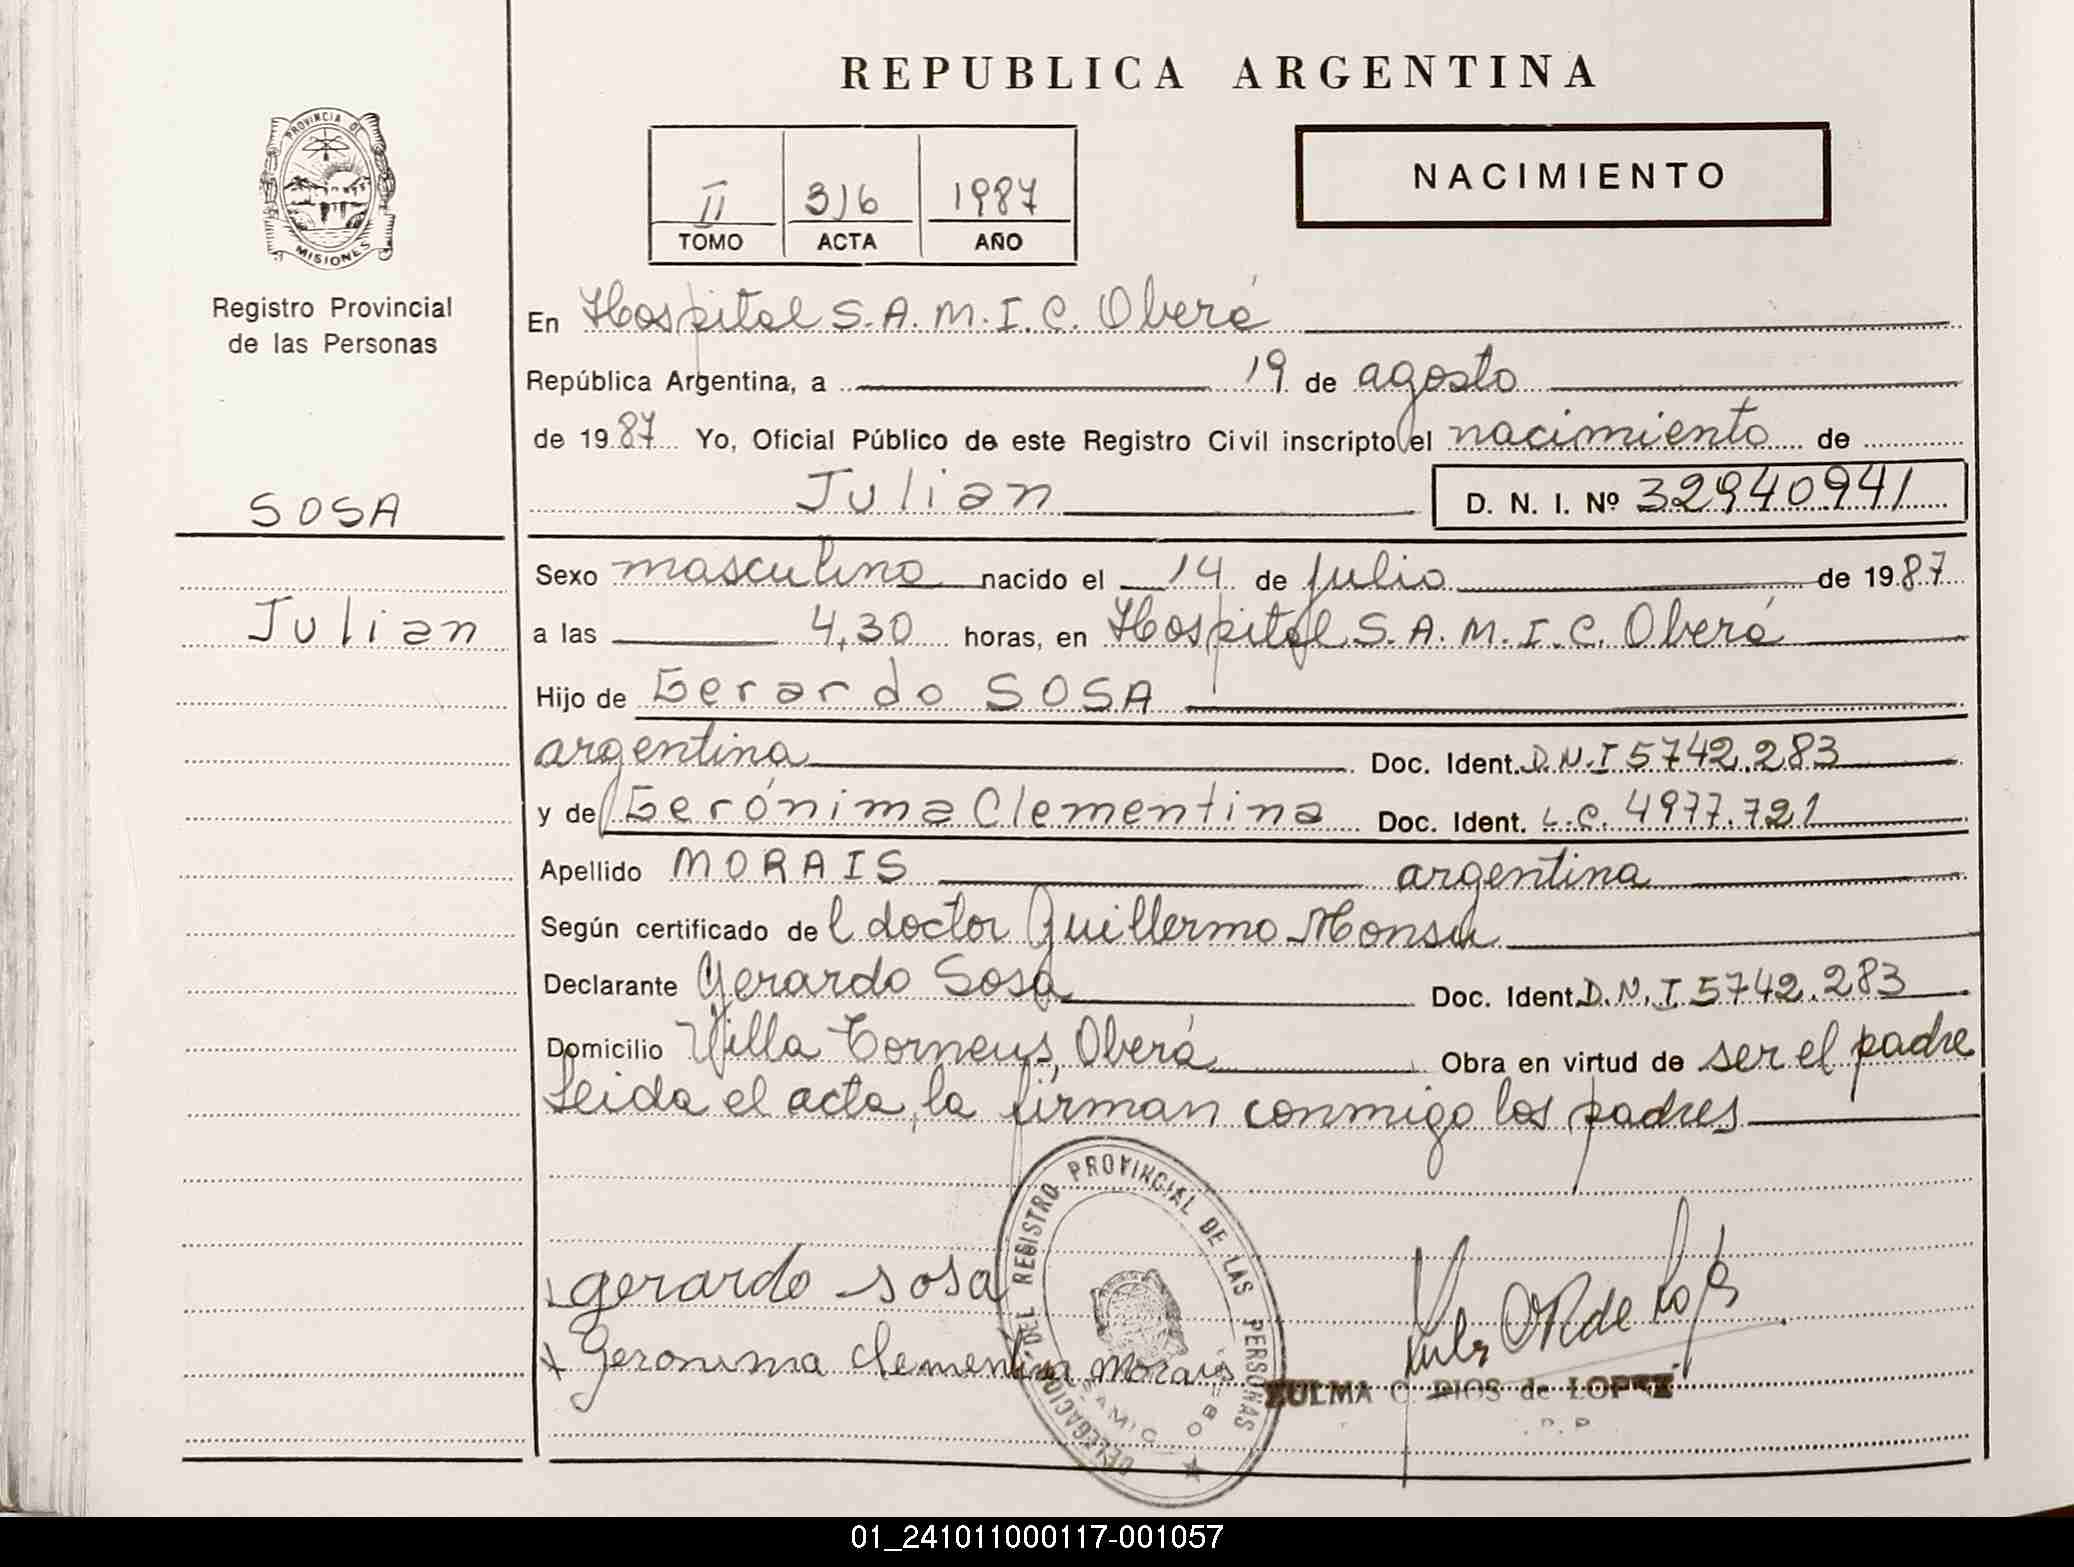 REPUBLICA ARGENTINA
PROVINCIA DE
MISIONES
Registro Provincial
de las Personas
SOSA
Julian
II 316 1987
TOMO ACTA AÑO
NACIMIENTO
En Hospital S.A.M.I.C. Oberá
República Argentina, a 19 de agosto
de 1987 Yo, Oficial Público de este Registro Civil inscripto el nacimiento de
Julian D. N. I. Nº 32940941
Sexo masculino nacido el 14 de julio de 1987
a las 4,30 horas, en Hospital S.A.M.I.C. Oberá
Hijo de Gerardo SOSA
argentina Doc. Ident. D.N.I 5742.283
y de Gerónima Clementina Doc. Ident. L.C. 4977.721
Apellido MORAIS argentina
Según certificado del doctor Guillermo
Declarante Gerardo Sosa Doc. Ident. D.N.I 5742.283
Domicilio Villa Torneus, Oberá Obra en virtud de ser el padre
Leida el acta, la firman conmigo los padres
gerardo sosa
Geronima Clementina Morais
DELEGACION DEL REGISTRO PROVINCIAL DE LAS PERSONAS
SAMIC OBERA
ZULMA C. DIOS de LOPEZ
01_241011000117-001057